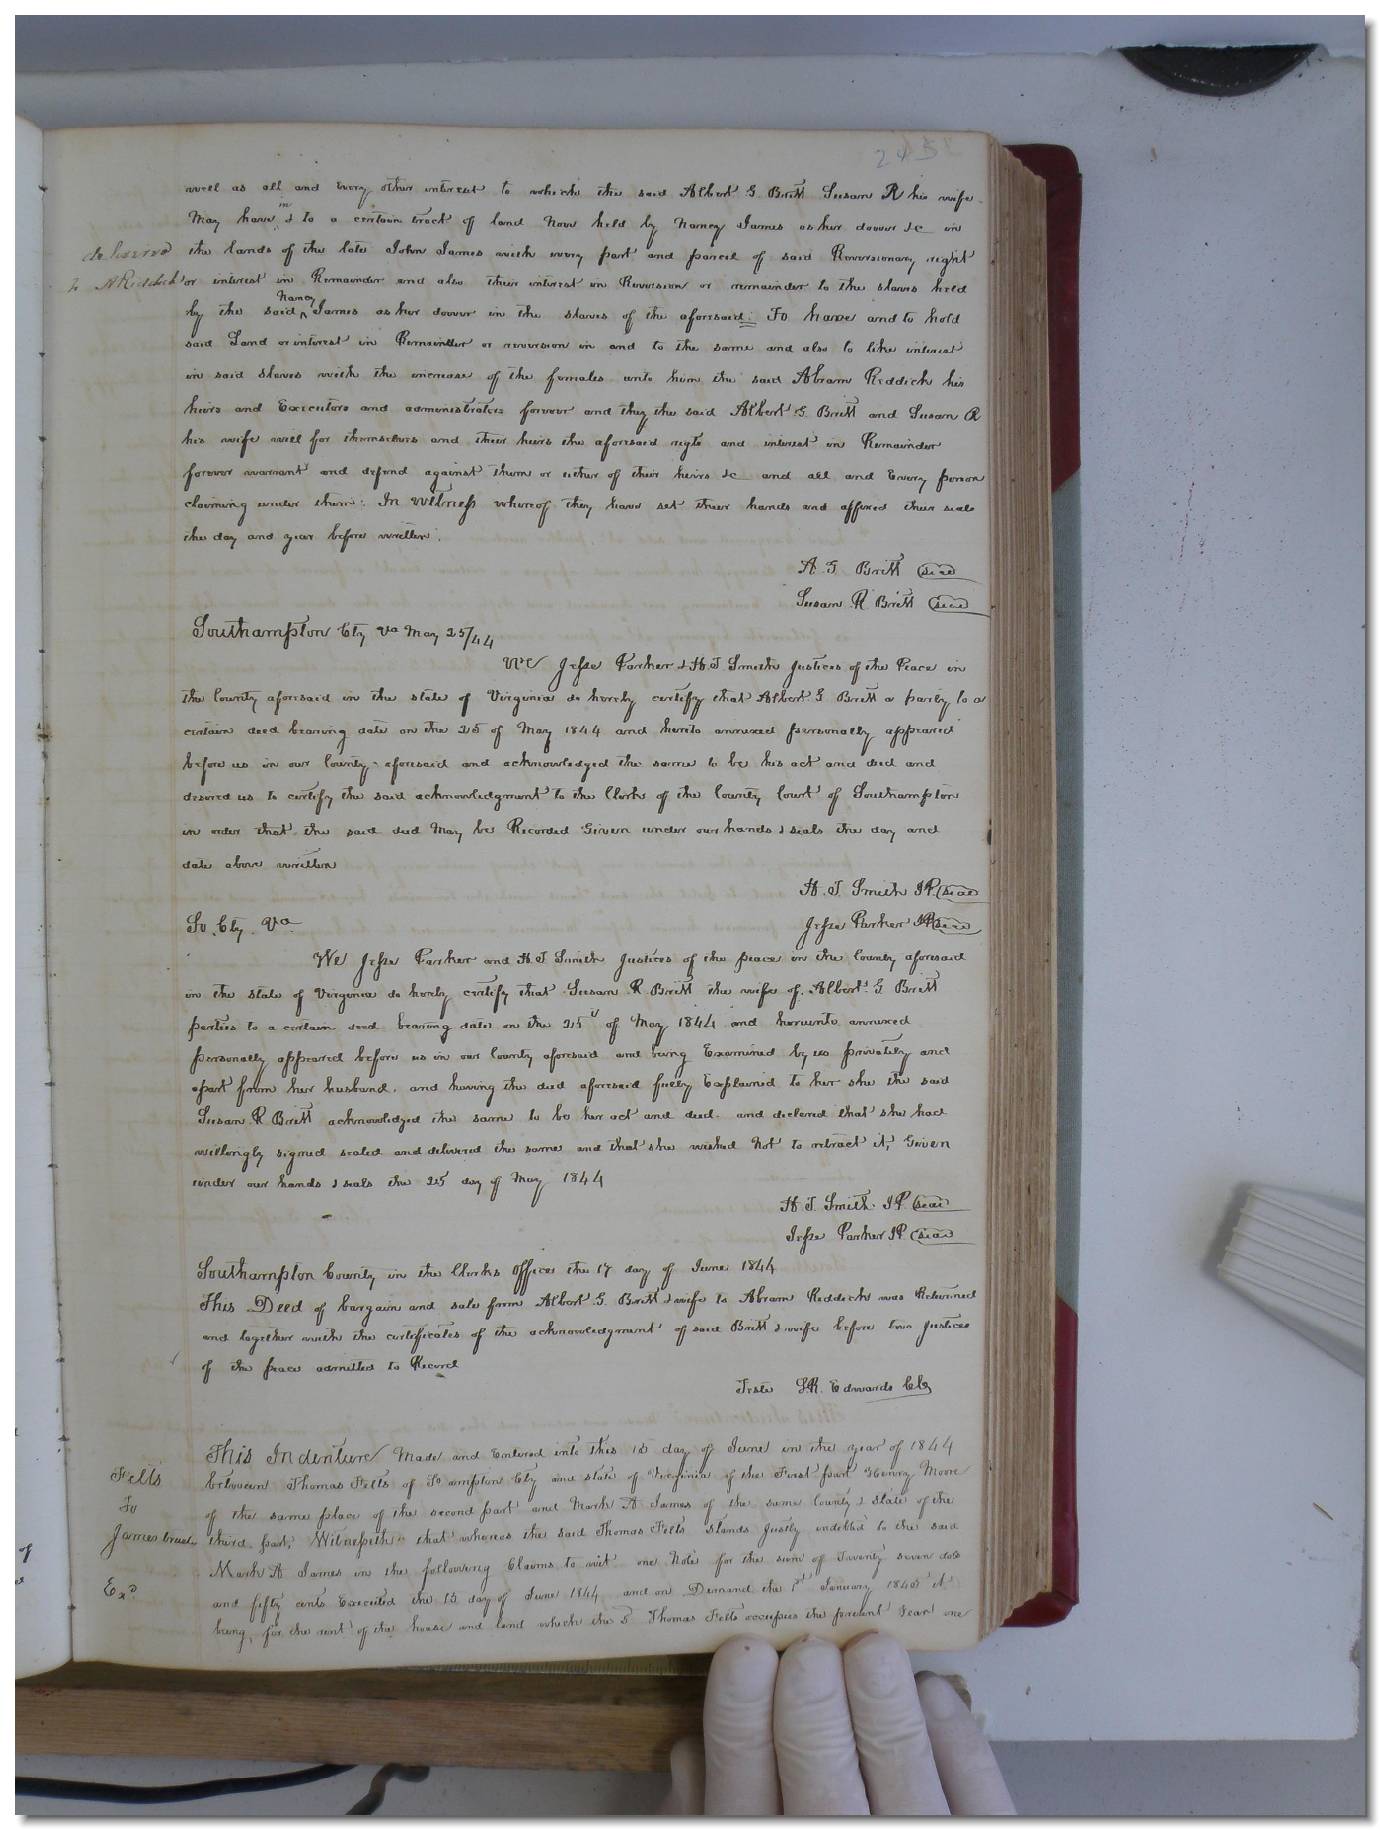 245
well as all and Every other interest to which the said Albert G. Britt Susan R his wife
May have in & to a certain tract of land Now held by Nancy James as her dower &c in
the lands of the late John James with every part and parcel of said Reversionary right
delivered
to A Reddick
or interest in Remainder and also their interest in Reversion or remainder to the slaves held
by the said Nancy James as her dower in the slaves of the aforesaid: To have and to hold
said Land or interest in Remainder or reversion in and to the same and also to like interest
in said slaves with the increase of the females unto him the said Abram Reddick his
heirs and Executors and administrators forever and they the said Albert G. Britt and Susan R
his wife will for themselves and their heirs the aforesaid rigts and interest in Remainder
forever warrant and defend against them or either of their heirs &c and all and Every person
claiming under them: In Witness whereof they have set their hands and affixed their seals
the day and year before written.
A. G Britt (seal)
Susan R Britt (seal)
Southampton Cty Va May 25/44
We Jesse Parker & H. J. Smith Justices of the Peace in
the County aforesaid in the state of Virginia do hereby certify that Albert G Britt a party to a
certain deed bearing date on the 25 of May 1844 and hereto annexed personally appeared
before us in our County aforesaid and acknowledged the same to be his act and deed and
desired us to certify the said acknowledgment to the Clerk of the County Court of Southampton
in order that the said deed May be Recorded Given under our hands & seals the day and
date above written
H. J. Smith JP. (seal)
So. Cty. Va
Jesse Parker JP (seal)
We Jesse Parker and H. J Smith Justices of the peace in the County aforesaid
in the state of Virginia do hereby certify that Susan R Britt the wife of Albert G Britt
parties to a certain deed bearing date on the 25th of May 1844 and hereunto annexed
personally appeared before us in our County aforesaid and being Examined by us privately and
apart from her husband. and having the deed aforesaid fully Explained to her she the said
Susan R Britt acknowledged the same to be her act and deed. and declared that she had
willingly signed sealed and delivered the same and that she wished Not to retract it, Given
under our hands & seals the 25 day of May 1844
H J. Smith JP. (seal)
Jesse Parker JP. (seal)
Southampton County in the Clerks Office the 17 day of June 1844
This Deed of bargain and sale from Albert G. Britt & wife to Abram Reddick was Returned
and together with the certificates of the acknowledgment of said Britt & wife before two Justices
of the peace admitted to Record
Teste LR. Edwards Clk
This Indenture Made and Entered into this 15 day of June in the year of 1844
Felts
between Thomas Felts of So ampton Cty and state of Virginia of the First part Henry Moore
To
of the same place of the second part and Mark A James of the same County & state of the
James trust
third part, Witnesseth that whereas the said Thomas Felts stands Justly indebted to the said
Mark A James in the following Claims to wit one Note for the sum of Twenty seven dols
Exd
and fifty cents Executed the 15 day of June 1844 and on Demand the 1st January 1845 it
being for the rent of the house and land which the sd Thomas Felts occupies the present Year one